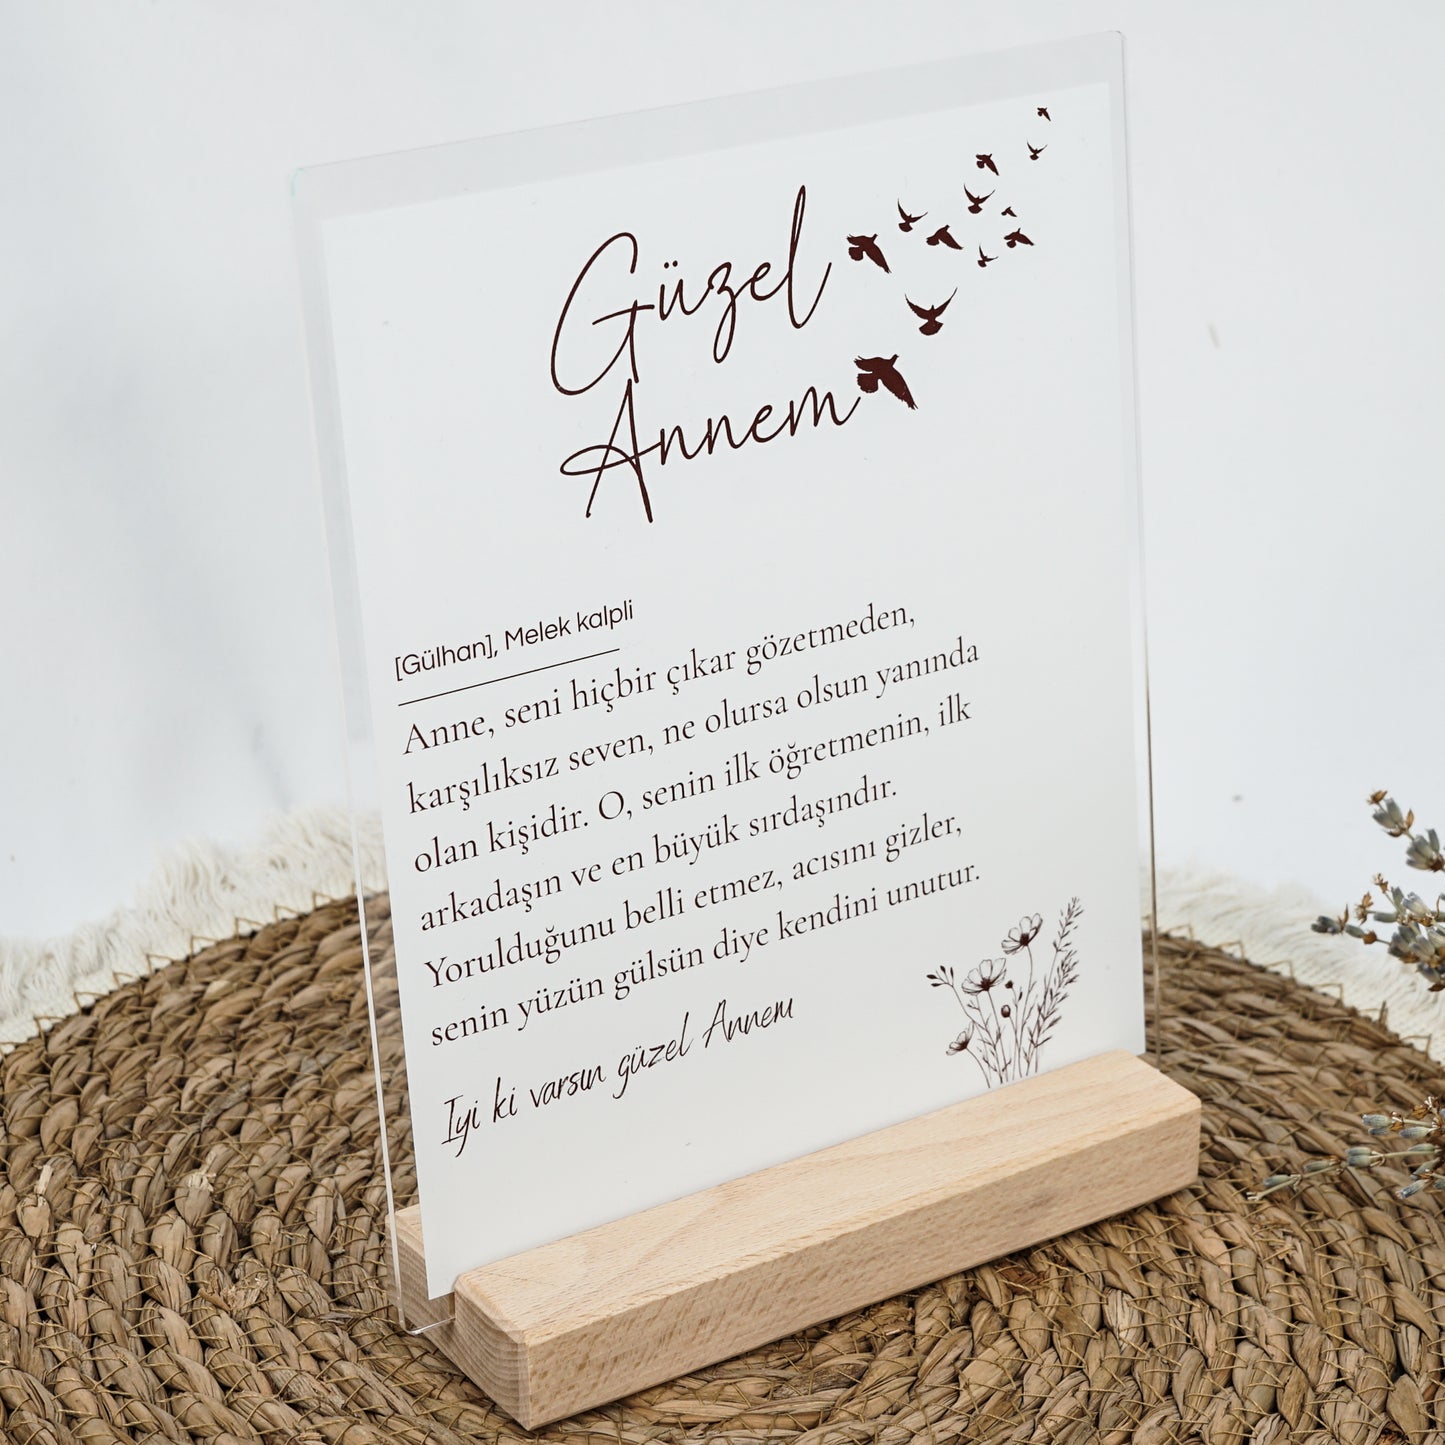 Güzel
Annem
[Gülhan], Melek kalpli
Anne, seni hiçbir çıkar gözetmeden,
karşılıksız seven, ne olursa olsun yanında
olan kişidir. O, senin ilk öğretmenin, ilk
arkadaşın ve en büyük sırdaşındır.
Yorulduğunu belli etmez, acısını gizler,
senin yüzün gülsün diye kendini unutur.
Iyi ki varsın güzel Annem